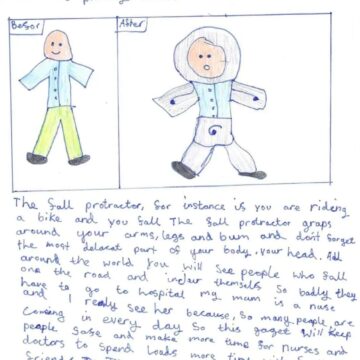 Befor
After
The fall protractor, for instance is you are riding
a bike and you fall The fall protractor graps
around your arms, legs and bum and don't forget
the most delacat part of your body, your head. All
around the world you will see people who fall
one the road and injuer themself So badly they
have to go to hospital my mum is a nuse
and I realy see her because, so many people are
Coming in every day So this gaget will keep
people safe and make more time for nurse and
doctors to spend loads more time with